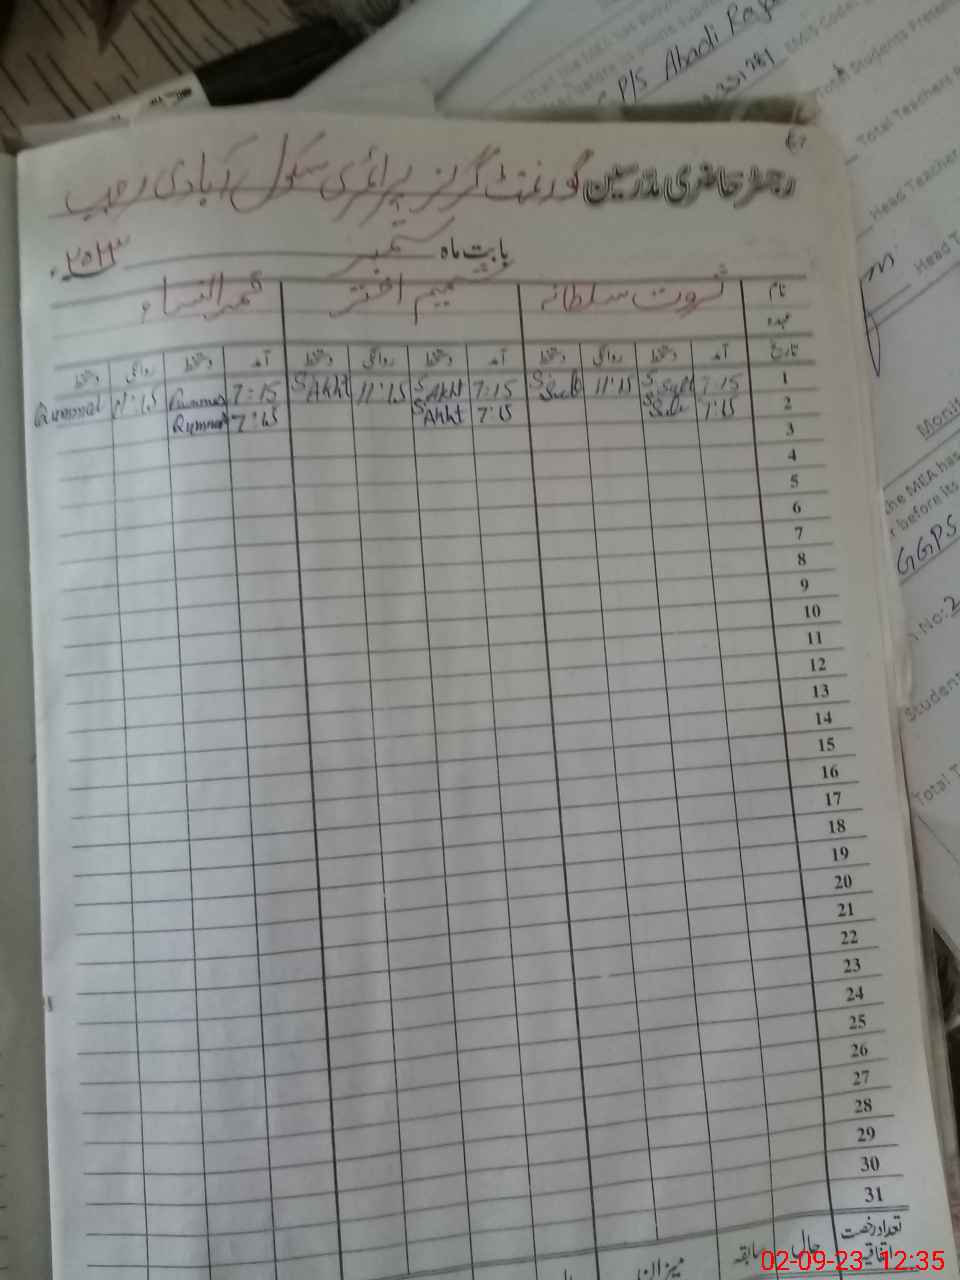 رجسٹر حاضری مدرسین گورنمنٹ گرلز پرائمری سکول آبادی رجب
بابت ماہ ستمبر ۲۰۲۳ء
نام ثروت سلطانہ شمیم اختر قمرالنساء
عہدہ
تاریخ آمد دستخط روانگی دستخط آمد دستخط روانگی دستخط آمد دستخط روانگی دستخط
1 7:15 11:15 7:15 S Akht 11:15 S Akht 7:15 11:15
2 7:15 7:15 S Akht 7:15
3
4
5
6
7
8
9
10
11
12
13
14
15
16
17
18
19
20
21
22
23
24
25
26
27
28
29
30
31
تعداد رخصت
اتفاقیہ حال سابقہ میزان
P/S Abadi Raja
EMIS Code:
Students Present
Total Teachers
Head Teacher
Head T
the MEA has
r before its
GGPS
n No:2
Student
Total T
02-09-23 12:35